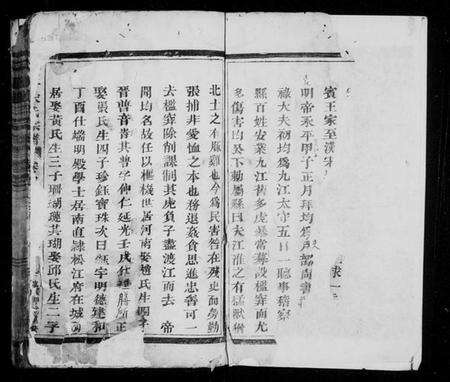 賓王家至漢宋
明帝永平甲子正月拜均爲尚書
祿大夫初均爲九江太守五日一聽事稽察
縣百姓安業九江舊多虎暴常募設檻穽而尤
多傷害均至下勅屬縣曰夫江淮之有猛獸猶
北土之有雞豚也今爲民害咎在殘吏而勞勤
張捕非憂恤之本也務退姦貪思進忠善可一
去檻穽除削課制其虎負子盡渡江而去 帝
聞均名故任以樞機世居河南娶趙氏生四子
晉普音普其普字仲仁延光壬戌仕 正
娶張氏生四子珍鈺寶珠次曰 字明德建和
丁酉仕端明殿學士居南直隸松江府在城
居娶黃氏生三子珊瑚璉其瑚娶邱氏生二子